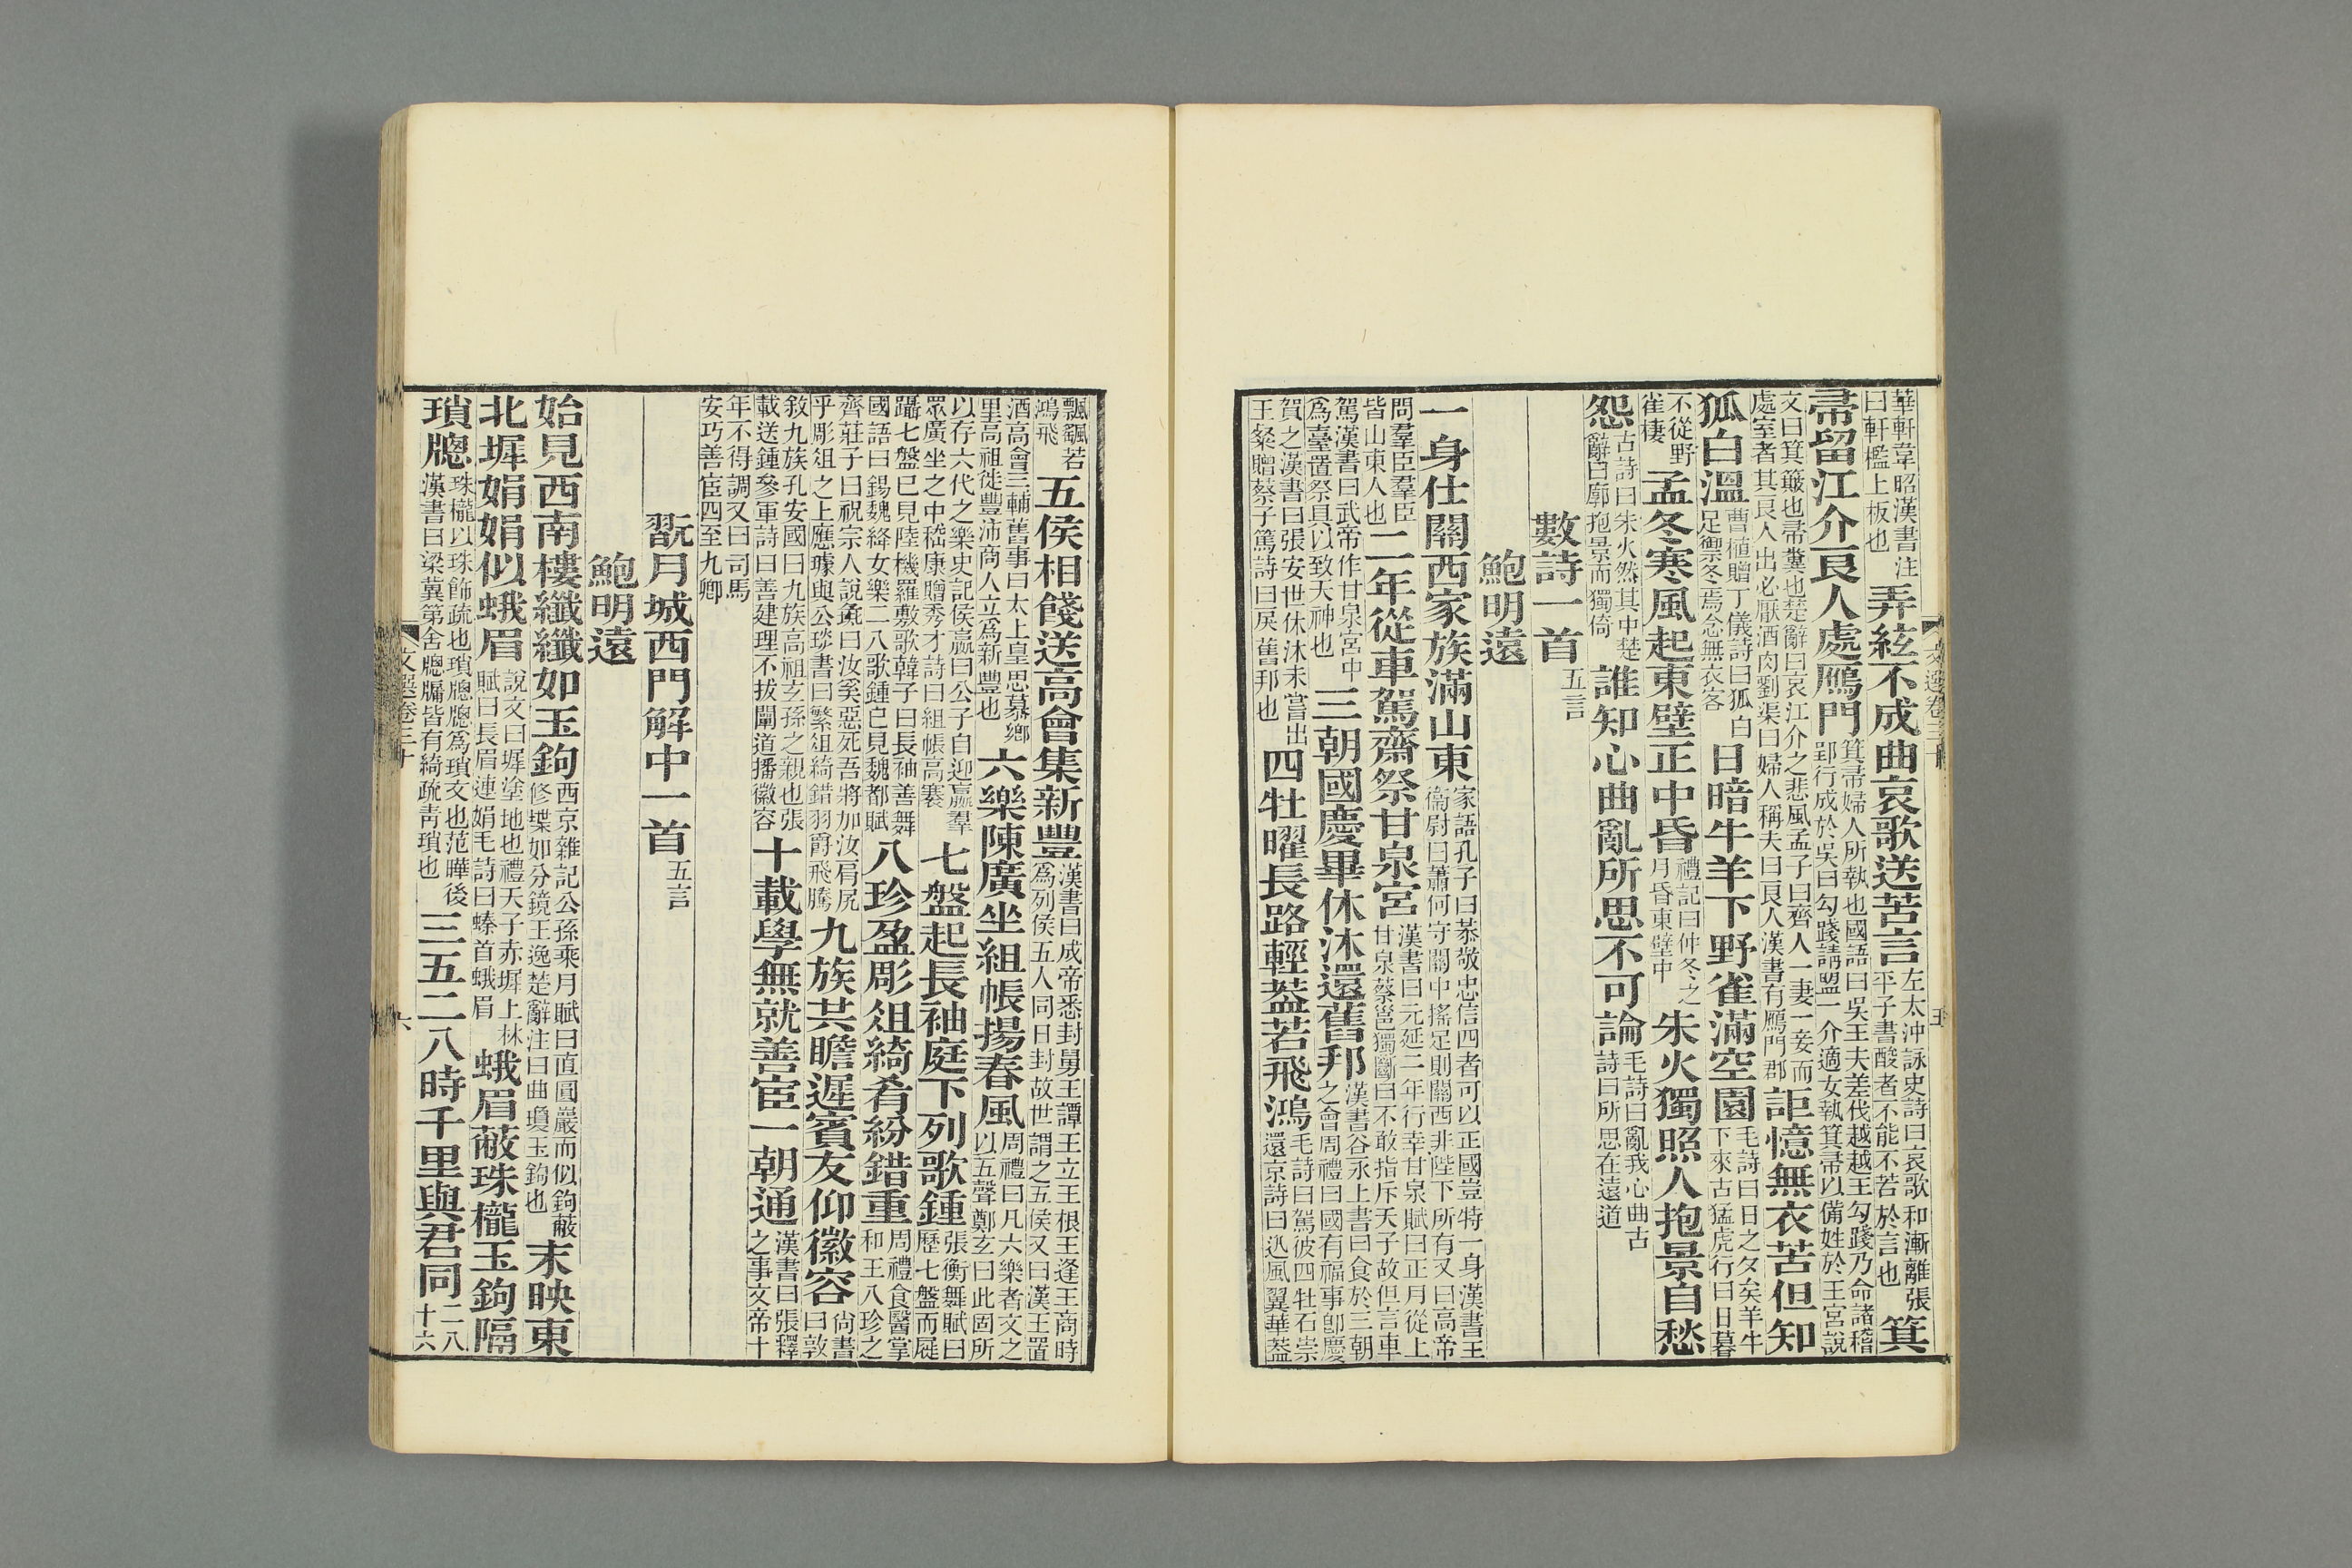 華軒韋昭漢書注
曰軒檻上板也
弄絃不成曲哀歌送苦言
左太沖詠史詩曰哀歌和漸離張
平子書酸者不能不若於言也
箕
帚留江介良人處鴈門
箕帚婦人所執也國語曰吳王夫差伐越越王勾踐乃命諸稽
郢行成於吳曰勾踐請盟一介適女執箕帚以備姓於王宮說
文曰箕簸也帚糞也楚辭曰哀江介之悲風孟子曰齊人一妻一妾而
處室者其良人出必厭酒肉劉渠曰婦人稱夫曰良人漢書有鴈門郡
詎憶無衣苦但知
狐白溫
曹植贈丁儀詩曰狐白
足禦冬焉念無衣客
日暗牛羊下野雀滿空園
毛詩曰日之夕矣羊牛
下來古猛虎行曰日暮
不從野
雀棲
孟冬寒風起東壁正中昏
禮記曰仲冬之
月昏東壁中
朱火獨照人抱景自愁
怨
古詩曰朱火然其中楚
辭曰廓抱景而獨倚
誰知心曲亂所思不可論
毛詩曰亂我心曲古
詩曰所思在遠道
數詩一首
五言
鮑明遠
一身仕關西家族滿山東
家語孔子曰恭敬忠信四者可以正國豈特一身漢書王
衞尉曰蕭何守關中搖足則關西非陛下所有又曰高帝
問羣臣羣臣
皆山東人也
二年從車駕齋祭甘泉宮
漢書曰元延二年行幸甘泉賦曰正月從上
甘泉蔡邕獨斷曰不敢指斥天子故但言車
駕漢書曰武帝作甘泉宮中
爲臺置祭具以致天神也
三朝國慶畢休沐還舊邦
漢書谷永上書曰食於三朝
之會周禮曰國有福事卽慶
賀之漢書曰張安世休沐未嘗出
王粲贈蔡子篤詩曰戾舊邦也
四牡曜長路輕葢若飛鴻
毛詩曰駕彼四牡石崇
還京詩曰迅風翼華葢
文選卷三十
五
飄颻若
鴻飛
五侯相餞送高會集新豐
漢書曰成帝悉封舅王譚王立王根王逢王商時
爲列侯五人同日封故世謂之五侯又曰漢王置
酒高會三輔舊事曰太上皇思慕鄉
里高祖徙豐沛商人立爲新豐也
六樂陳廣坐組帳揚春風
周禮曰凡六樂者文之
以五聲鄭玄曰此固所
以存六代之樂史記侯嬴曰公子自迎嬴羣
眾廣坐之中嵇康贈秀才詩曰組帳高褰
七盤起長袖庭下列歌鍾
張衡舞賦曰
歷七盤而屣
躡七盤已見陸機羅敷歌韓子曰長袖善舞
國語曰錫魏絳女樂二八歌鍾已見魏都賦
八珍盈彫俎綺肴紛錯重
周禮食醫掌
和王八珍之
齊莊子曰祝宗人說彘曰汝奚惡死吾將加汝肩尻
乎彫俎之上應璩與公琰書曰繁俎綺錯羽爵飛騰
九族共瞻遲賓友仰徽容
尙書
曰敦
敘九族孔安國曰九族高祖玄孫之親也張
載送鍾參軍詩曰善建理不拔闡道播徽容
十載學無就善宦一朝通
漢書曰張釋
之事文帝十
年不得調又曰司馬
安巧善宦四至九卿
翫月城西門解中一首
五言
鮑明遠
始見西南樓纖纖如玉鉤
西京雜記公孫乘月賦曰直圓巖而似鉤蔽
修堞如分鏡王逸楚辭注曰曲瓊玉鉤也
末映東
北墀娟娟似蛾眉
說文曰墀塗地也禮天子赤墀上林
賦曰長眉連娟毛詩曰螓首蛾眉
蛾眉蔽珠櫳玉鉤隔
瑣牕
珠櫳以珠飾疏也瑣牕牕爲瑣文也范曄後
漢書曰梁冀第舍牕牖皆有綺疏靑瑣也
三五二八時千里與君同
二八
十六
文選卷三十
六